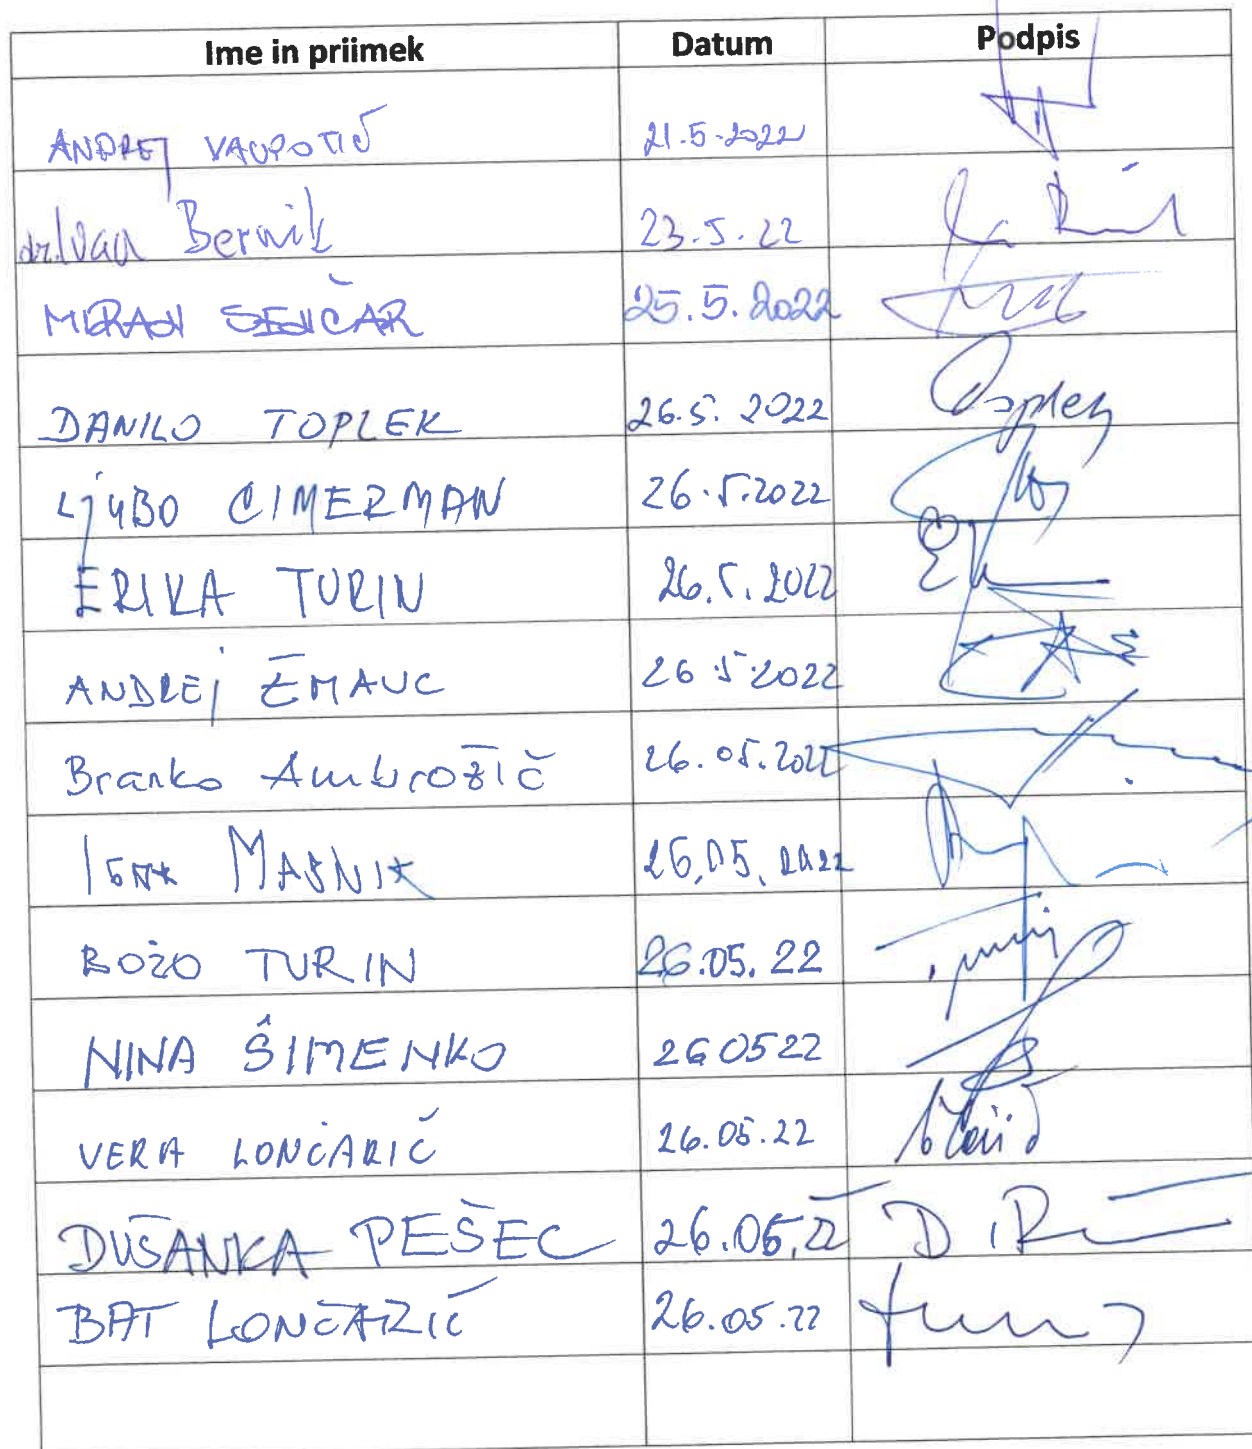 Ime in priimek Datum Podpis
ANDREJ VAUPOTIČ 21.5.2022
dr. Ivan Bernik 23.5.22
MIRAN SENČAR 25.5.2022
DANILO TOPLEK 26.5.2022
LjUBO CIMERMAN 26.5.2022
ERIKA TURIN 26.5.2022
ANDREj ŽMAUC 26 5 2022
Branko Ambrožič 26.05.2022
26.05.2022
BOŽO TURIN 26.05.22
NINA ŠIMENKO 260522
VERA LONČARIČ 26.05.22
DUŠANKA PEŠEC 26.05.22
BAT LONČARIČ 26.05.22